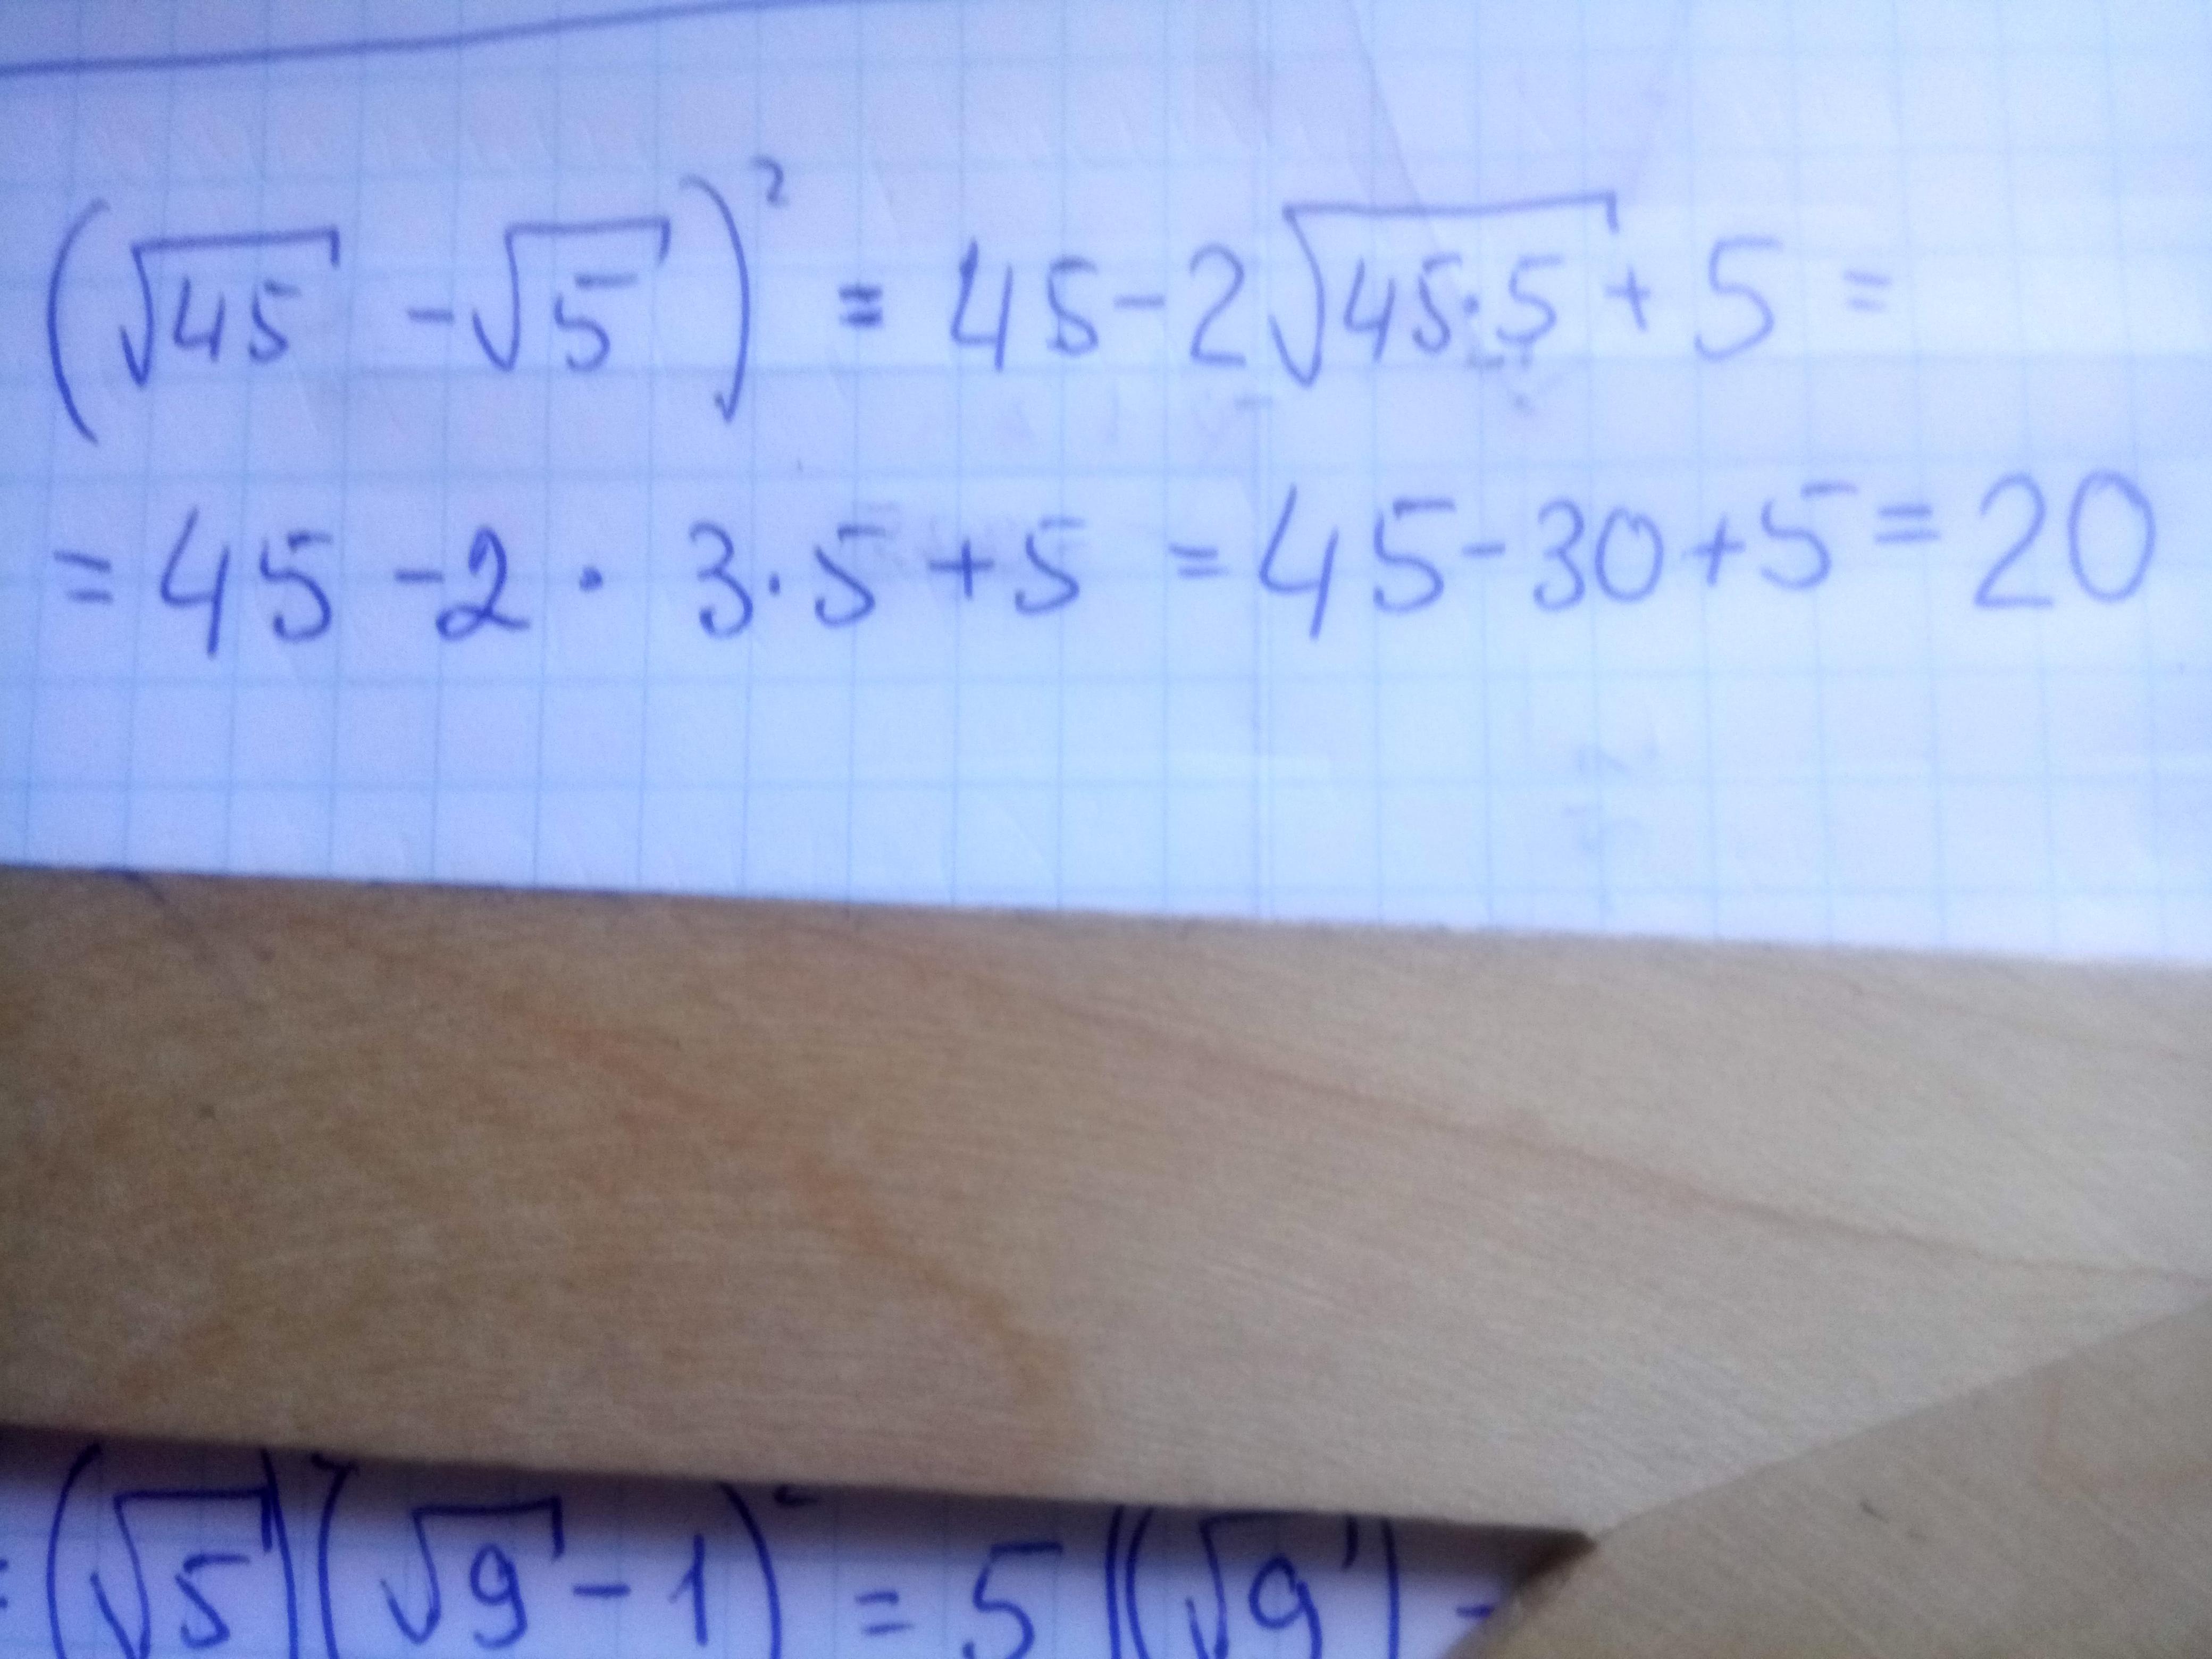 (√45 - √5)² = 45 - 2√45·5 + 5 =
= 45 - 2 · 3 · 5 + 5 = 45 - 30 + 5 = 20
= (√5)(√9 - 1)² = 5((√9) -